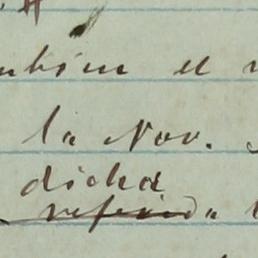 mbien el
la Nov.
dicha
referida